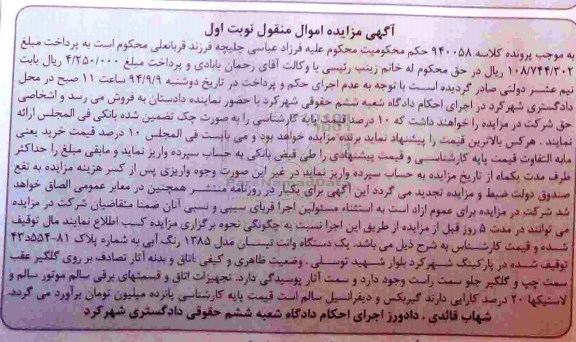 آگهی مزایده اموال منقول نوبت اول
به موجب پرونده کلاسه ۹۴۰۰۵۸ حکم محکومیت محکوم علیه فرزاد عباسی چلیچه فرزند قربانعلی محکوم است به پرداخت مبلغ
۱۰۸/۷۴۴/۳۰۲ ریال در حق محکوم له خانم زینب رئیسی با وکالت آقای رحمان بابادی و پرداخت مبلغ ۴/۲۵۰/۰۰۰ ریال بابت
نیم عشر دولتی صادر گردیده است با توجه به عدم اجرای حکم و پرداخت در تاریخ دوشنبه ۹۴/۹/۹ ساعت ۱۱ صبح در محل
دادگستری شهرکرد در اجرای احکام دادگاه شعبه ششم حقوقی شهرکرد با حضور نماینده دادستان به فروش می رسد و اشخاصی
حق شرکت در مزایده را خواهند داشت که ۱۰ درصد قیمت پایه کارشناسی را به صورت چک تضمین شده بانکی فی المجلس ارائه
نمایند . هرکس بالاترین قیمت را پیشنهاد نماید برنده مزایده خواهد بود و می بایست فی المجلس ۱۰ درصد قیمت خرید یعنی
مابه التفاوت قیمت پایه کارشناسی و قیمت پیشنهادی را طی فیش بانکی به حساب سپرده واریز نماید و مابقی مبلغ را حداکثر
ظرف مدت یکماه از تاریخ مزایده به حساب سپرده واریز نماید در غیر این صورت وجوه واریزی پس از کسر هزینه مزایده به نفع
صندوق دولت ضبط و مزایده تجدید می گردد این آگهی برای یکبار در روزنامه منتشر همچنین در معابر عمومی الصاق خواهد
شد شرکت در مزایده برای عموم آزاد است به استثناء مسئولین اجرا قربای سببی و نسبی آنان ضمنا متقاضیان شرکت در مزایده
می توانند در مدت ۵ روز قبل از مزایده از طریق این اجرا نسبت به چگونگی نحوه برگزاری مزایده کسب اطلاع نمایند مال توقیف
شده و قیمت کارشناس به شرح ذیل می باشد. یک دستگاه وانت نیسان مدل ۱۳۸۵ رنگ آبی به شماره پلاک ۸۱-۴۳د۵۵۴
توقیف شده در پارکینگ شهرکرد بلوار شهید توسلی . وضعیت ظاهری و کیفی :اتاق و بدنه آثار تصادف بر روی گلگیر عقب
سمت چپ و گلگیر جلو سمت راست وجود دارد و سمت آثار پوسیدگی دارد. تجهیزات اتاق و قسمتهای برقی سالم موتور سالم و
لاستیکها ۲۰ درصد کارایی دارند گیربکس و دیفرانسیل سالم است قیمت پایه کارشناسی پانزده میلیون تومان برآورد می گردد.
شهاب قائدی . دادورز اجرای احکام دادگاه شعبه ششم حقوقی دادگستری شهرکرد